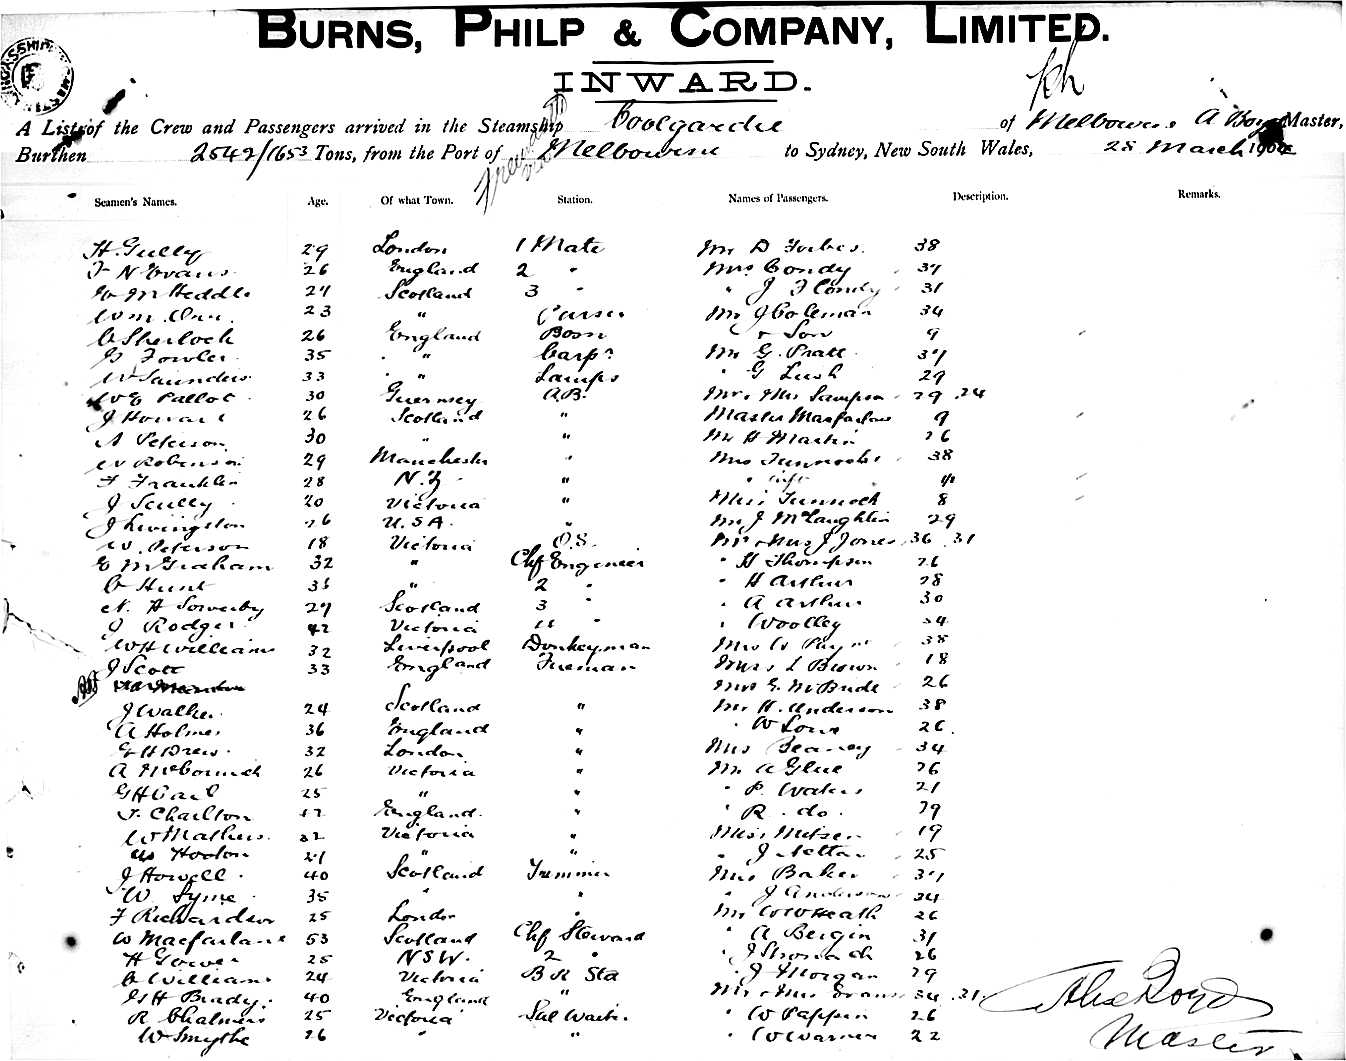 BURNS, PHILP & COMPANY, LIMITED.
INWARD.
A List of the Crew and Passengers arrived in the Steamship Coolgardie of Melbourne A Boyd Master,
Burthen 2542/1653 Tons, from the Port of Melbourne to Sydney, New South Wales, 28 March
Seamen's Names. Age. Of what Town. Station. Names of Passengers. Description. Remarks.
H. Gully 29 London 1 Mate Mr D Forbes. 38
F N Evans 26 England 2 " Mrs Condy 37
M Heddle 27 Scotland 3 " " J F Condy 31
Wm. Orr 23 " Purser Mr J Coleman 34
C Sherlock 26 England Bosn & Son 9
G Fowler 35 " Carpr Mr G. Pratt 37
W Saunders 33 " Lamps " G Lush 29
W E Pallot 30 Guernsey A.B. Mr & Mrs Sampson 29 .24
J Howard 26 Scotland " Master Macfarlane 9
A Peterson 30 " " Mr H Martin 26
W Robinson 29 Manchester " Mrs 38
F Franklin 28 N.Z. " "
J Scully 20 Victoria " Miss Tunnock 8
J Livingston 26 U.S.A. " Mr J McLaughlin 29
W. Peterson 18 Victoria O.S. Mr & Mrs J Jones 36 .31
E McGraham 32 " Chf Engineer " H Thompson 26
C Hunt " 2 " " H Arthur 28
N. A Sowerby 29 Scotland 3 " " A Arthur 30
J Rodger 42 Victoria " " Woolley
W H Williams 32 Liverpool Donkeyman Mrs W Payne 38
J Scott 33 England Fireman Miss L Brown 18
Mrs G. McBride 26
J Walker 24 Scotland " Mr H. Anderson 38
A Holmes 36 England " " W Lowe 26
G H Drew 32 London " Mrs Beaney 34
A McCormick 26 Victoria " Mr A Glue 26
G H Carl 25 " " " P. Waters 21
F. Charlton England " " R. do. 29
W Mathers 32 Victoria " Miss 19
Hooton 21 " " " J 25
J Howell 40 Scotland Trimmer Mrs Baker 37
W Syme 35 " " " J Anderson 24
F Richardson 25 London " Mr W W Heath 26
W Macfarlane 53 Scotland Chf Steward " A Bergin 31
H Gower 25 NSW. 2 " " J 26
C Williams 24 Victoria B R Std " J Morgan 29
G H Brady 40 England " Mr & Mrs Evans 34 .21
R Chalmers 25 Victoria Sal Waiter " W Pappin 26
W Smythe 26 " " " W Warner 22
Alex Boyd
Master